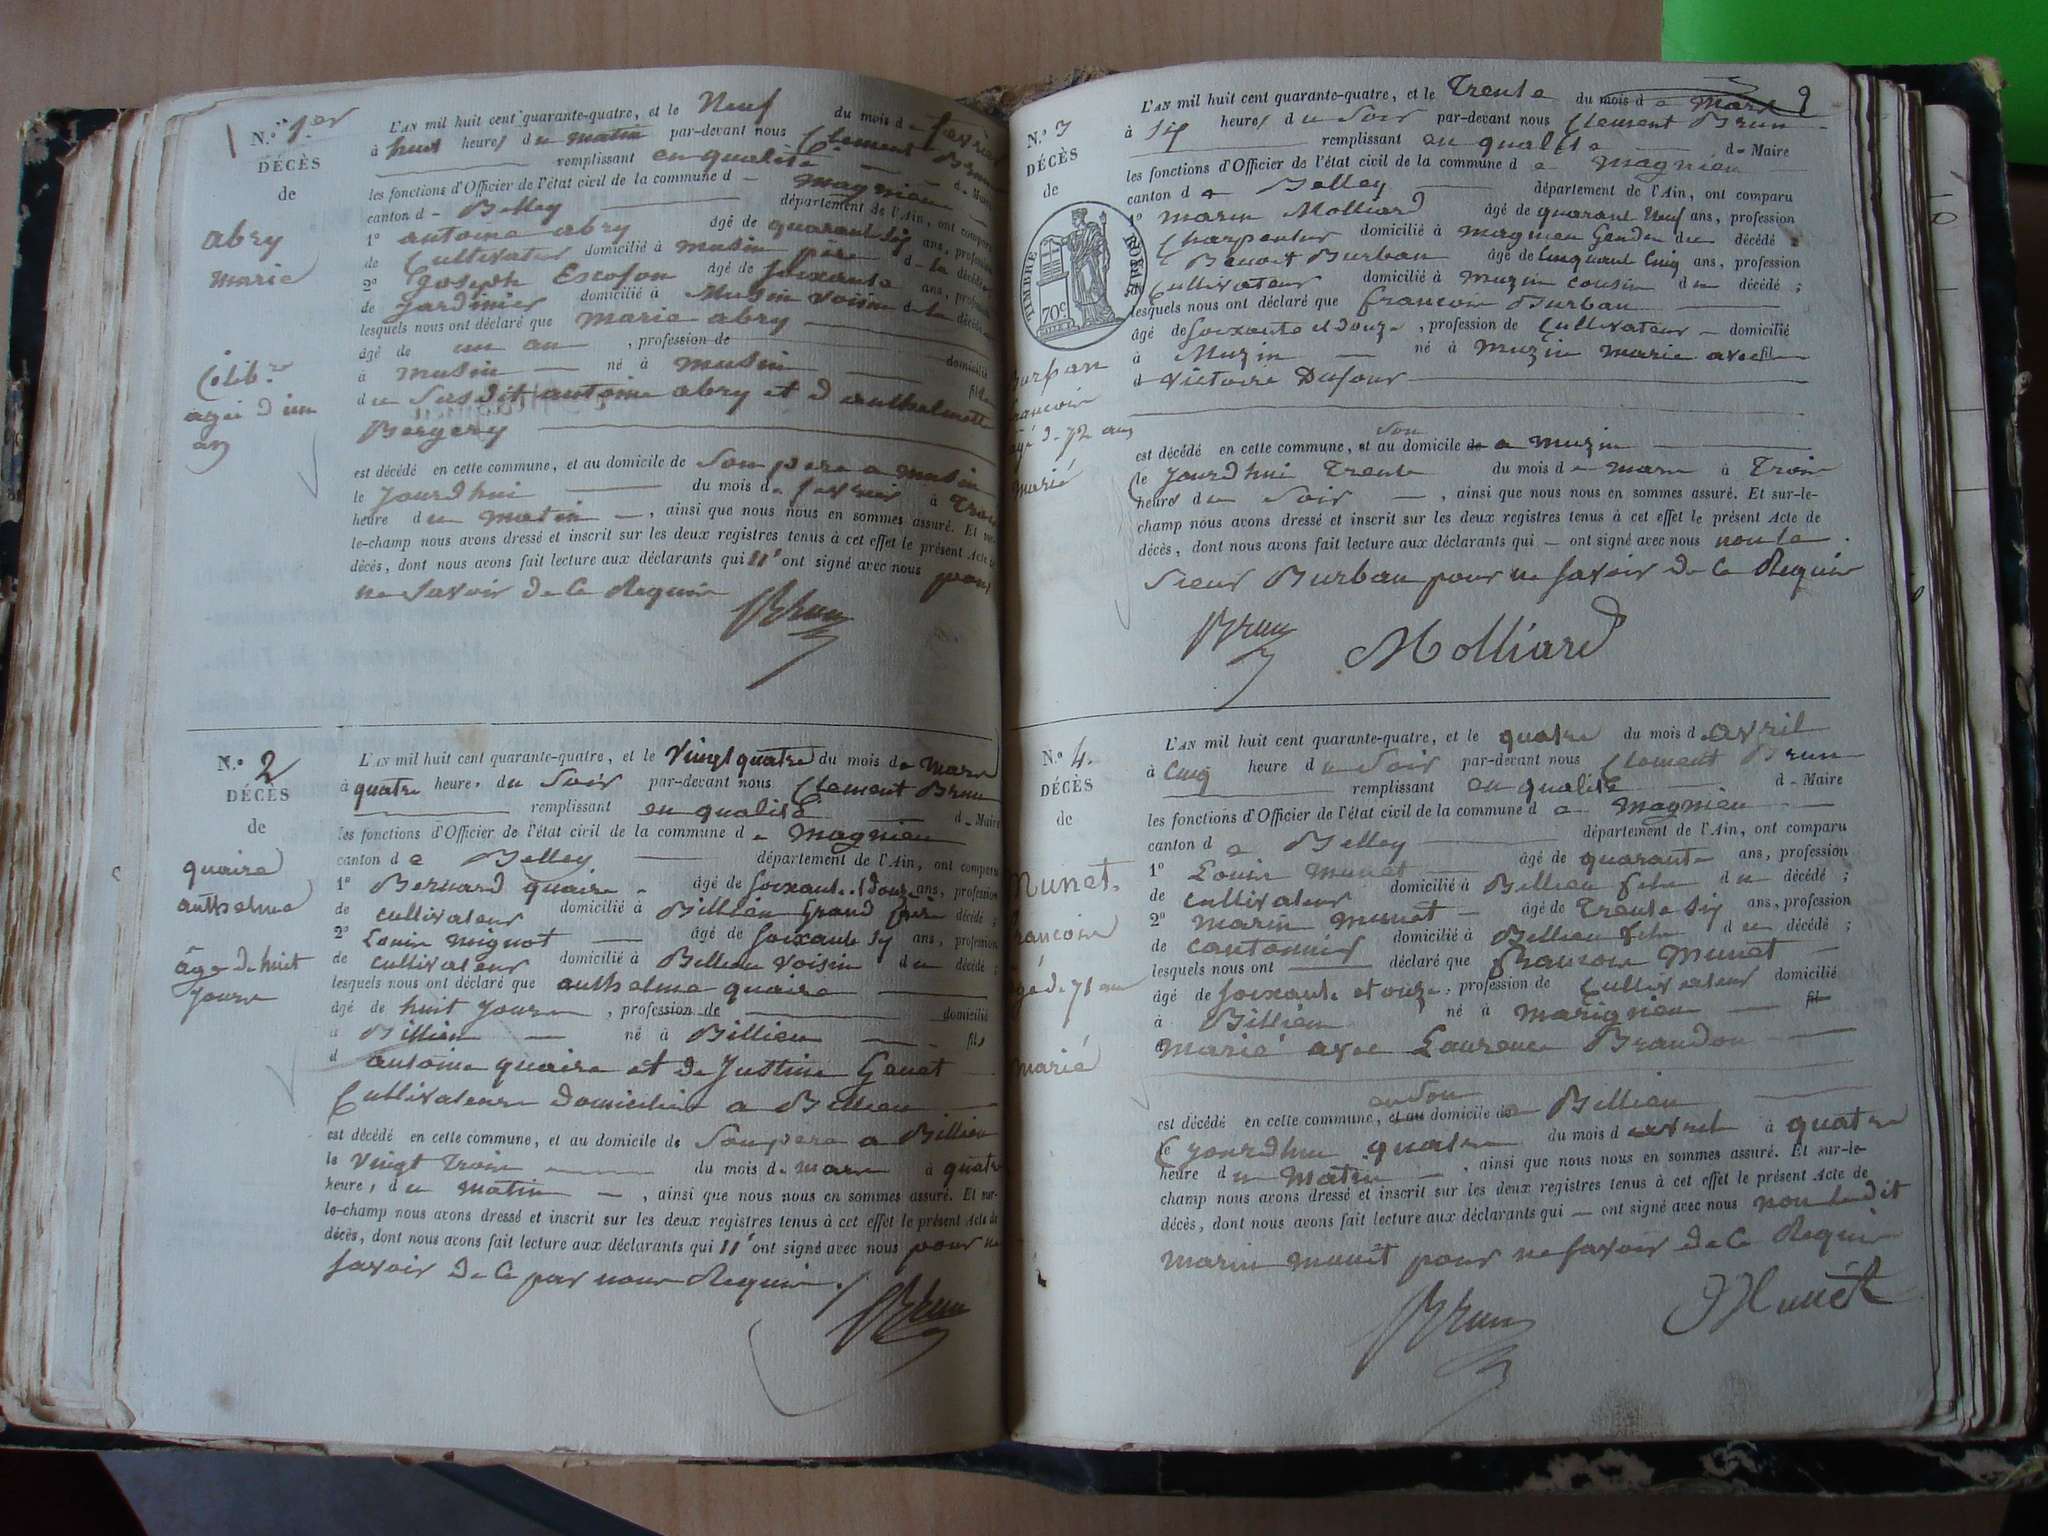 N.º 1er
DÉCÈS
de
abry
marie
Célib.re
agée d'un
an
L'AN mil huit cent quarante-quatre, et le Neuf du mois de février
à huit heures du matin par-devant nous Clement Brun
remplissant en qualité de Maire
les fonctions d'Officier de l'état civil de la commune de magnieu
canton de Belley département de l'Ain, ont comparu
1º antoine abry âgé de quarant six ans, profession
de Cultivateur domicilié à musin père de la décédée
2º Joseph Escofon âgé de soixante ans, profession
de Jardinier domicilié à Musin voisin de la décédée
lesquels nous ont déclaré que Marie abry
âgé de un an , profession de domicilié
à musin né à musin fille
du Susdit antoine abry et d anthelmette
Bergery
est décédé en cette commune, et au domicile de son pere a musin
le jourdhui du mois de fevrier à Trois
heure du matin , ainsi que nous nous en sommes assuré. Et sur-
le-champ nous avons dressé et inscrit sur les deux registres tenus à cet effet le présent Acte de
décès, dont nous avons fait lecture aux déclarants qui n'ont signé avec nous pour
ne savoir de ce Requis
Brun
N.º 2
DÉCÈS
de
quaire
anthelme
âge de huit
jours
L'AN mil huit cent quarante-quatre, et le Vingt quatre du mois de Mars
à quatre heures du Soir par-devant nous Clement Brun
remplissant en qualité de Maire
les fonctions d'Officier de l'état civil de la commune de magnieu
canton de Belley département de l'Ain, ont comparu
1º Bernard quaire âgé de soixante et douze ans, profession
de cultivateur domicilié à Billieu Grand père décédé ;
2º Louis mignot âgé de soixante six ans, profession
de cultivateur domicilié à Billieu voisin du décédé ;
lesquels nous ont déclaré que anthelme quaire
âgé de huit jours , profession de domicilié
à Billieu né à Billieu fils
d antoine quaire et de Justine Genet
Cultivateurs domiciliés a Billieu
est décédé en cette commune, et au domicile de Son pere a Billieu
le Vingt Trois du mois de mars à quatre
heures du matin , ainsi que nous nous en sommes assuré. Et sur-
le-champ nous avons dressé et inscrit sur les deux registres tenus à cet effet le présent Acte de
décès, dont nous avons fait lecture aux déclarants qui n'ont signé avec nous pour ne
savoir de ce par nous Requis.
Brun
N.º 3
DÉCÈS
de
TIMBRE ROYAL
70c
Burban
francois
agé de 72 ans
Marié
L'AN mil huit cent quarante-quatre, et le Trente du mois de Mars
à six heures du Soir par-devant nous Clement Brun
remplissant en qualité de Maire
les fonctions d'Officier de l'état civil de la commune de magnieu
canton de Belley département de l'Ain, ont comparu
1º marin Molliard âgé de quarant Neuf ans, profession
Charpentier domicilié à magnieu Gendre du décédé ;
Benoit Burban âgé de Cinquant Cinq ans, profession
Cultivateur domicilié à Muzin cousin du décédé ;
lesquels nous ont déclaré que francois Burban
âgé de soixante et douze , profession de Cultivateur domicilié
à Muzin né à Muzin marie avec fil
d Victoire Dufour
son
est décédé en cette commune, et au domicile de a muzin
le jourdhui Trente du mois de mars à Trois
heures du Soir , ainsi que nous nous en sommes assuré. Et sur-le-
champ nous avons dressé et inscrit sur les deux registres tenus à cet effet le présent Acte de
décès, dont nous avons fait lecture aux déclarants qui ont signé avec nous non le
Sieur Burban pour ne savoir de ce Requis
Brun Molliard
N.º 4.
DÉCÈS
de
Munet.
francois
agé de 71 ans
Marié
L'AN mil huit cent quarante-quatre, et le quatre du mois d avril
à Cinq heure du Soir par-devant nous Clement Brun
remplissant en qualité de Maire
les fonctions d'Officier de l'état civil de la commune de magnieu
canton de Belley département de l'Ain, ont comparu
1º Louis Munet âgé de quarante ans, profession
de cultivateur domicilié à Billieu fils du décédé ;
2º marin munet âgé de Trente six ans, profession
de cantonnier domicilié à Billieu fils du décédé ;
lesquels nous ont déclaré que francois Munet
âgé de soixante et onze, profession de Cultivateur domicilié
à Billieu né à Marignieu fil
Marié avec Laurence Brandon
en son
est décédé en cette commune, et au domicile de a Billieu
le jourdhui quatre du mois d avril à quatre
heure du Matin , ainsi que nous nous en sommes assuré. Et sur-le-
champ nous avons dressé et inscrit sur les deux registres tenus à cet effet le présent Acte de
décès, dont nous avons fait lecture aux déclarants qui ont signé avec nous non ledit
marin munet pour ne savoir de ce Requis
Brun Munet